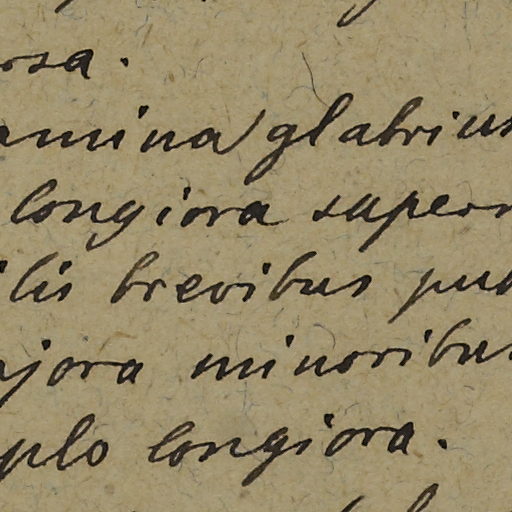 osa.
amina glabrius
longiora super
ilis brevibus pub
ajora minoribus
plo longiora.